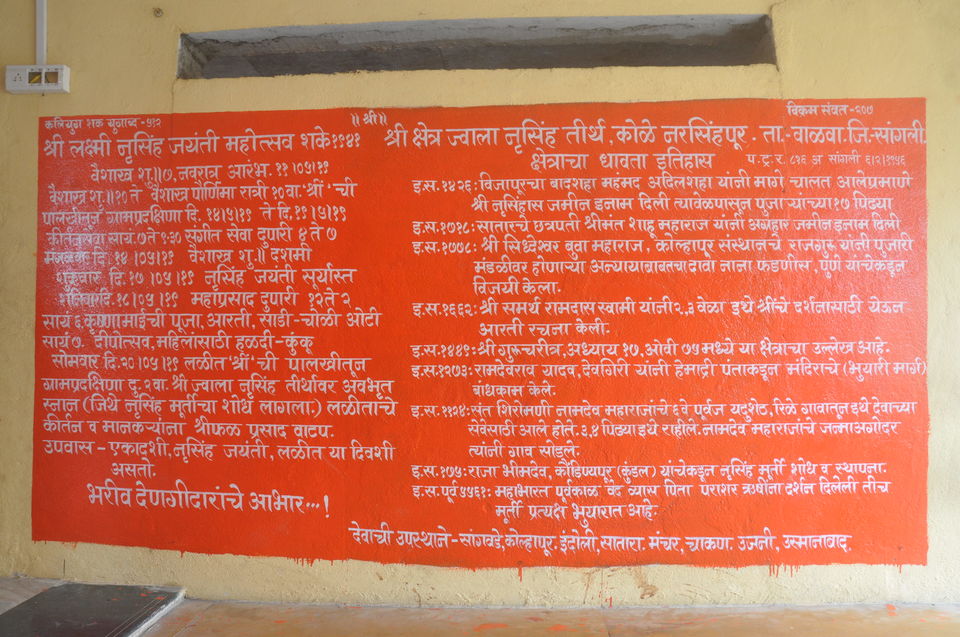 ॥ श्री॥
कलियुग शक युगाब्द - ५१२
विक्रम संवत - २०७
श्री लक्ष्मी नृसिंह जयंती महोत्सव शके १९४१
वैशाख शु.॥७, नवरात्र आरंभ. ११।०५।१९
वैशाख शु.॥१० ते वैशाख पौर्णिमा रात्री १० वा 'श्रीं' ची
पालखीतून ग्रामप्रदक्षिणा दि. १४।५।१९ ते दि. १९।५।१९
कीर्तनसेवा सायं. ७ ते ९.३० संगीत सेवा दुपारी ४ ते ७
मंगळवार दि. १४।०५।१९ वैशाख शु.॥ दशमी
शुक्रवार दि. १७।०५।१९ नृसिंह जयंती सूर्यास्त
शनिवार दि. १८।०५।१९ महाप्रसाद दुपारी १२ ते २
सायं ६ कृष्णामाईची पूजा, आरती, साडी-चोळी ओटी
सायं ७. दीपोत्सव, महिलांसाठी हळदी-कुंकू
सोमवार दि. २०।०५।१९ लळीत 'श्रीं' ची पालखीतून
ग्रामप्रदक्षिणा दु. २ वा. श्री ज्वाला नृसिंह तीर्थावर अवभृत
स्नान (जिथे नृसिंह मूर्तीचा शोध लागला.) लळीताचे
कीर्तन व मानकऱ्यांना श्रीफळ प्रसाद वाटप.
उपवास - एकादशी, नृसिंह जयंती, लळीत या दिवशी
असतो.
भरीव देणगीदारांचे आभार...!
श्री क्षेत्र ज्वाला नृसिंह तीर्थ, कोळे नरसिंहपूर - ता. वाळवा. जि-सांगली.
क्षेत्राचा धावता इतिहास प. ट्र. र. ८१६ अ सांगली ६।२।१९५६
इ.स. १४२६: विजापूरचा बादशहा महंमद अदिलशहा यांनी मागे चालत आलेप्रमाणे
श्री नृसिंहास जमीन इनाम दिली त्यावेळपासुन पुजाऱ्यांच्या १७ पिढ्या
इ.स. १७१८: सातारचे छत्रपती श्रीमंत शाहू महाराज यांनी अग्रहार जमीन इनाम दिली
इ.स. १७७८: श्री सिध्देश्वर बुवा महाराज, कोल्हापूर संस्थानचे राजगुरू यांनी पुजारी
मंडळीवर होणाऱ्या अन्यायाबाबतचा दावा नाना फडणीस, पुणे यांचेकडून
विजयी केला.
इ.स. १६६२: श्री समर्थ रामदास स्वामी यांनी २, ३ वेळा इथे श्रींचे दर्शनासाठी येऊन
आरती रचना केली.
इ.स. १४४९: श्री गुरूचरीत्र, अध्याय १७, ओवी ७५ मध्ये या क्षेत्राचा उल्लेख आहे.
इ.स. १२७३: रामदेवराव यादव, देवगिरी यांनी हेमाद्री पंताकडून मंदिराचे (भुयारी मार्ग)
बांधकाम केले.
इ.स. ११२४: संत शिरोमणी नामदेव महाराजांचे ६ वे पूर्वज यदुशेठ, रिळे गावातून इथे देवाच्या
सेवेसाठी आले होते. ३,४ पिढ्या इथे राहीले. नामदेव महाराजांचे जन्माअगोदर
त्यांनी गाव सोडले.
इ.स. १७५: राजा भीमदेव, कौंडिण्यपूर (कुंडल) यांचेकडून नृसिंह मूर्ती शोध व स्थापना.
इ.स. पूर्व ५५६१: महाभारत पूर्वकाळ वेद व्यास पिता पराशर ऋषींना दर्शन दिलेली तीच
मूर्ती प्रत्यक्ष भुयारात आहे.
देवाची उपस्थाने - सांगवडे, कोल्हापूर. इंदोली, सातारा. मंचर, चाकण. उजनी, उस्मानाबाद.